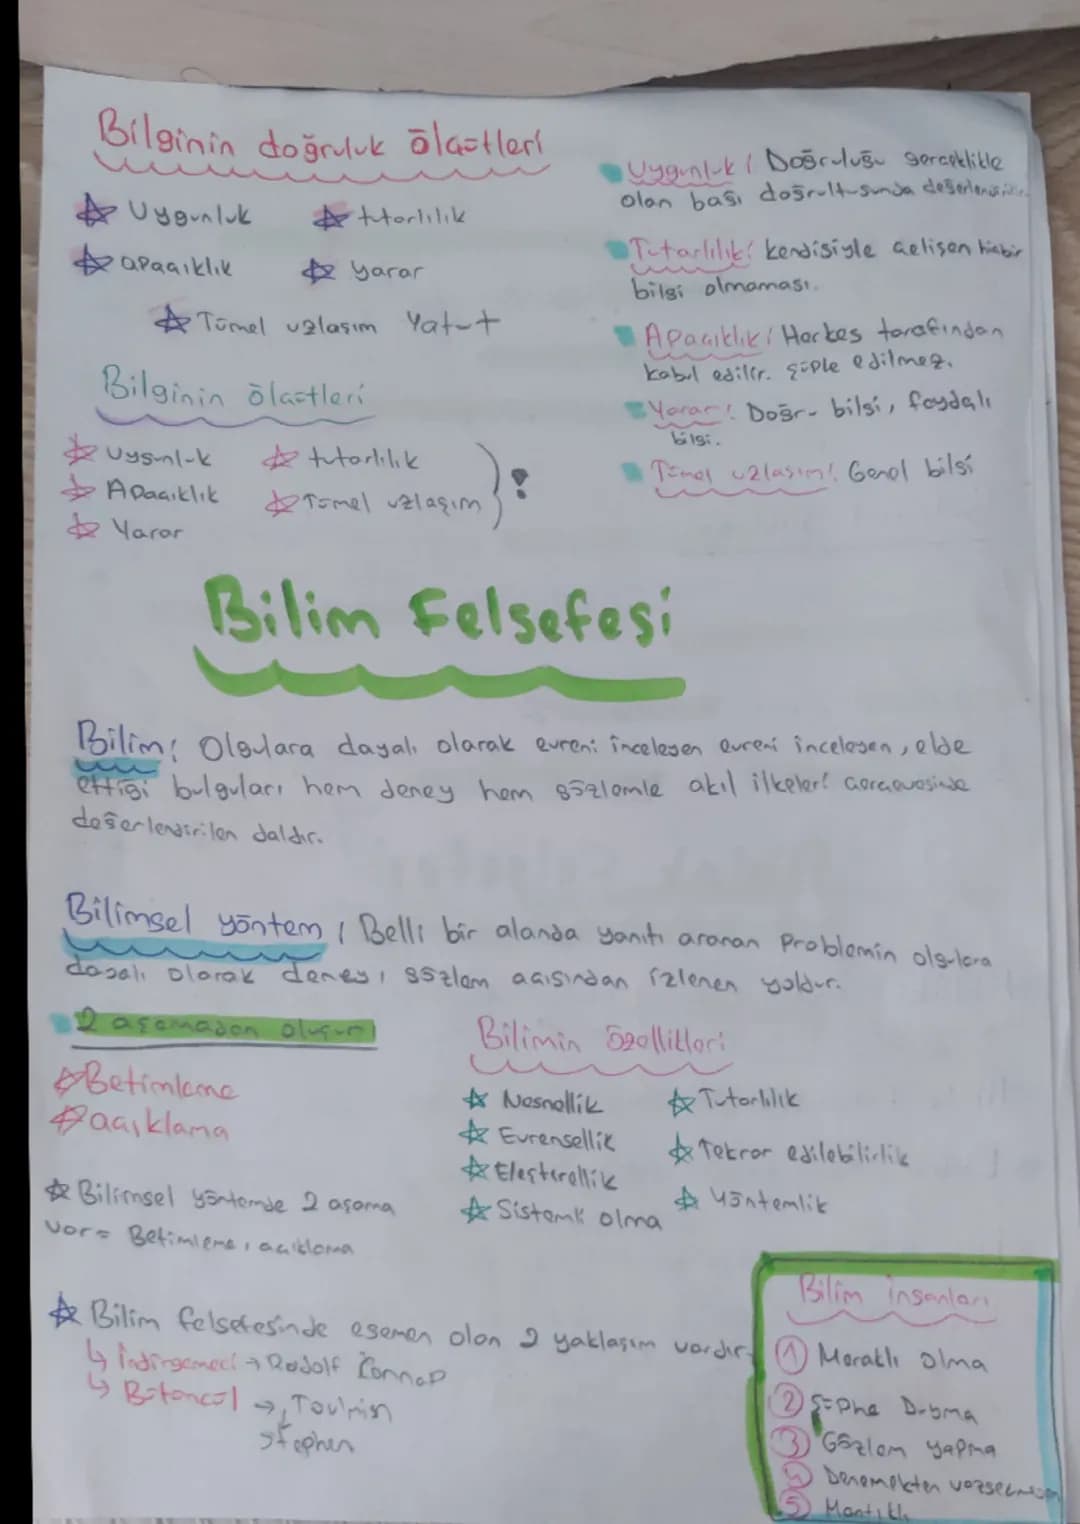 Bilginin doğruluk ölçütleri
Uygunluk
tutarlılık
apaçıklık
yarar
Tümel uzlaşım Yatut
Bilginin ölçütleri
Uygunluk
tutarlılık
Apaçıklık
Tümel uzlaşım
Yarar
Uygunluk: Doğruluğu gerçeklikle
olan bağı doğrultusunda
Tutarlılık: kendisiyle çelişen hiçbir
bilgi olmaması.
Apaçıklık: Herkes tarafından
kabul edilir. şüphe edilmez.
Yarar: Doğru bilgi, faydalı
bilgi.
Tümel uzlaşım: Genel bilgi
Bilim Felsefesi
Bilim: Olgulara dayalı olarak evreni inceleyen evreni inceleyen, elde
ettiği bulguları hem deney hem gözlemle akıl ilkeleri çerçevesinde
değerlendirilen daldır.
Bilimsel yöntem: Belli bir alanda yanıtı aranan problemin olgulara
dayalı olarak deney, gözlem açısından izlenen yoldur.
2 aşamadan oluşur
Betimleme
açıklama
Bilimin özellikleri
Nesnellik
Tutarlılık
Evrensellik
Tekrar edilebilirlik
Eleştirellik
Yöntemlik
Sistemli olma
Bilimsel yöntemde 2 aşama
var = Betimleme, açıklama
Bilim felsefesinde egemen olan 2 yaklaşım vardır.
İndirgemeci → Rudolf Carnap
Bütüncül → Toulmin
Stephen
Bilim insanları
1 Meraklı olma
2 Şüphe Duyma
3 Gözlem yapma
4 Denemekten
5 Mantıklı